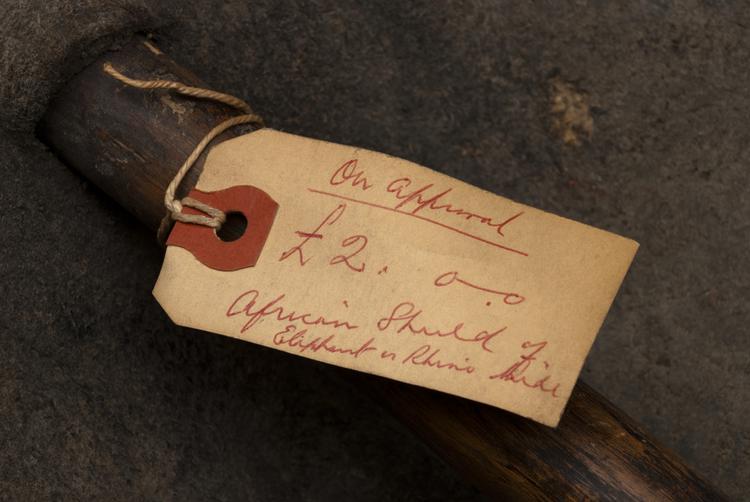 On Approval
£2. 0.0
African Shield of
Elephant or Rhino Hide